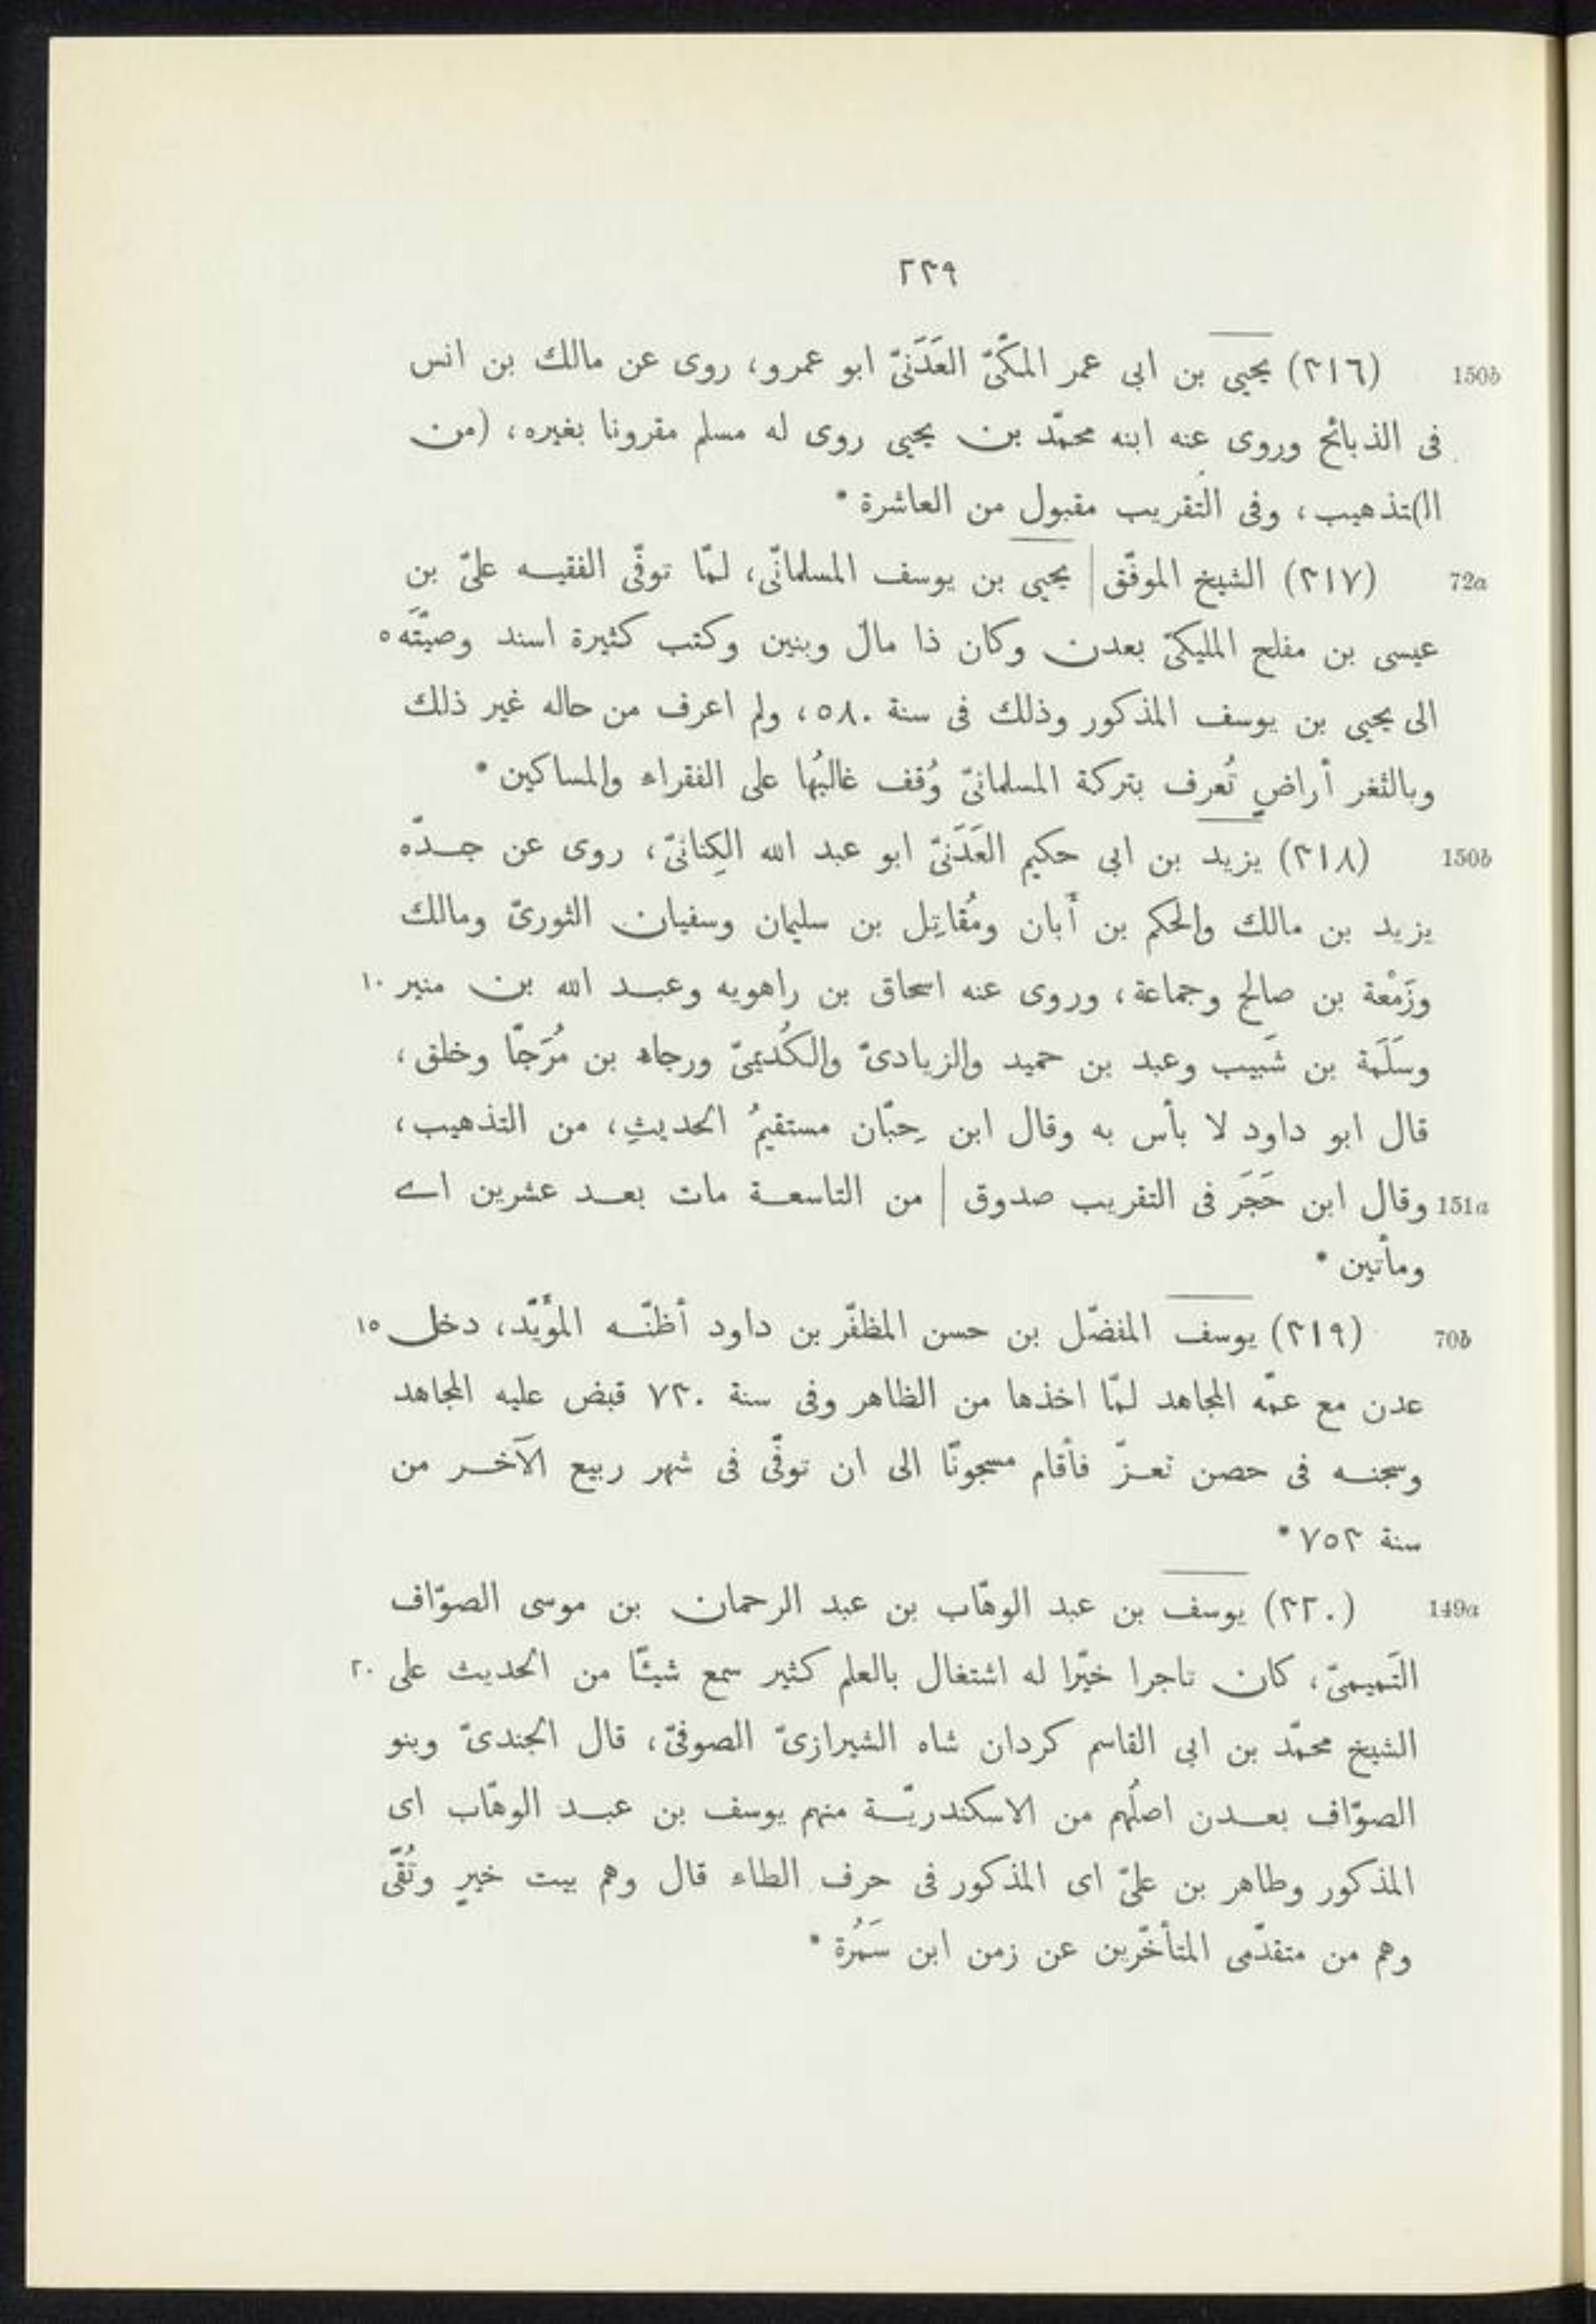 ٢٣٩
150b (٣١٦) يحيى بن ابى عمر المكّىّ العَدَنىّ ابو عمرو، روى عن مالك بن انس
فى الذبائح وروى عنه ابنه محمّد بن يحيى روى له مسلم مقرونا بغيره، (من
ال)تذهيب، وفى التقريب مقبول من العاشرة *
72a (٣١٧) الشيخ الموفّق | يحيى بن يوسف المسلمانّى، لمّا توفّى الفقيه علىّ بن
عيسى بن مفلح المليكىّ بعدن وكان ذا مال وبنين وكتب كثيرة اسند وصيّتَه ٥
الى يحيى بن يوسف المذكور وذلك فى سنة ٥٨٠، ولم اعرف من حاله غير ذلك
وبالثغر أراضٍ تُعرف بتركة المسلمانىّ وُقف غالبُها على الفقراء والمساكين *
150b (٣١٨) يزيد بن ابى حكيم العَدَنىّ ابو عبد الله الكِنانىّ، روى عن جدّه
يزيد بن مالك والحكم بن أَبان ومُقاتِل بن سليمان وسفيان الثورىّ ومالك
وزَمْعة بن صالح وجماعة، وروى عنه اسحاق بن راهويه وعبد الله بن منير ١٠
وسَلَمة بن شَبيب وعبد بن حميد والزيادىّ والكُدَيمىّ ورجاء بن مُرَجّا وخلق،
قال ابو داود لا بأس به وقال ابن حِبّان مستقيمُ الحديثِ، من التذهيب،
151a وقال ابن حَجَر فى التقريب صدوق | من التاسعة مات بعد عشرين اى
ومأتين *
70b (٣١٩) يوسف المفضّل بن حسن المظفّر بن داود أظنّه المؤيّد، دخل ١٥
عدن مع عمّه المجاهد لمّا اخذها من الظاهر وفى سنة ٧٣٠ قبض عليه المجاهد
وسجنه فى حصن تعزّ فأقام مسجونًا الى ان توفّى فى شهر ربيع الآخر من
سنة ٧٥٣ *
149a (٣٢٠) يوسف بن عبد الوهّاب بن عبد الرحمان بن موسى الصوّاف
التَميمىّ، كان تاجرا خيّرا له اشتغال بالعلم كثير سمع شيئًا من الحديث على ٢٠
الشيخ محمّد بن ابى القاسم كردان شاه الشيرازىّ الصوفىّ، قال الجندىّ وبنو
الصوّاف بعدن اصلُهم من الاسكندريّة منهم يوسف بن عبد الوهّاب اى
المذكور وطاهر بن علىّ اى المذكور فى حرف الطاء قال وهم بيت خيرٍ وتُقًى
وهم من متقدّمى المتأخّرين عن زمن ابن سَمُرة *